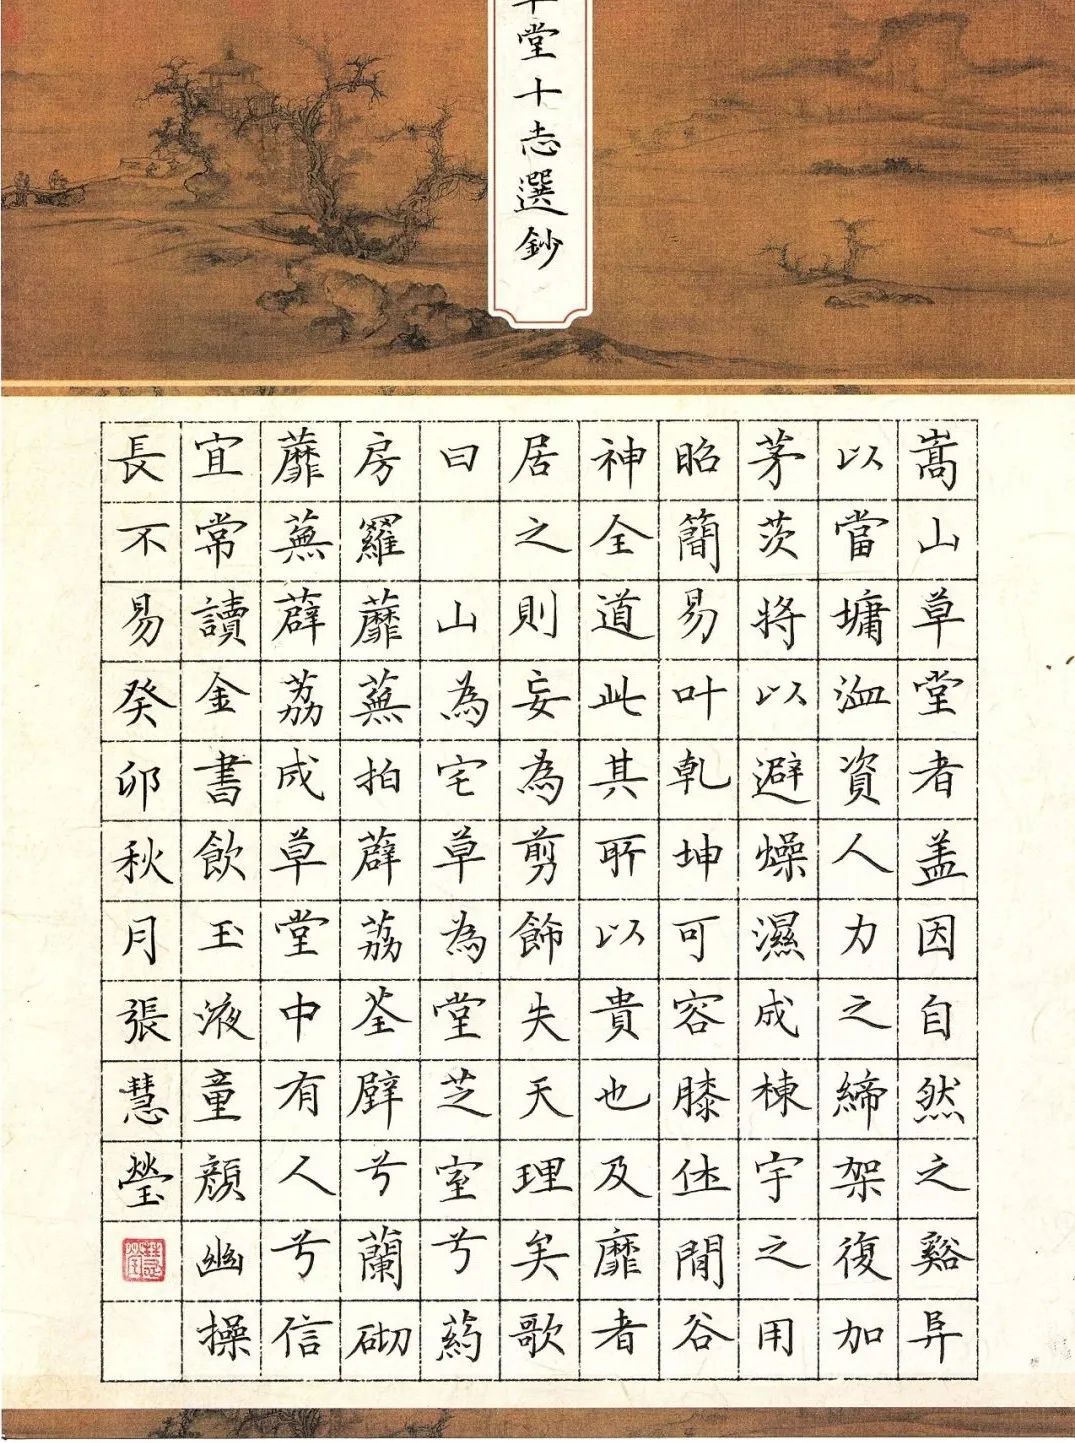 草堂十志選鈔
嵩山草堂者盖因自然之谿阜
以當墉洫資人力之締架復加
茅茨將以避燥濕成棟宇之用
昭簡易叶乾坤可容膝休閒谷
神全道此其所以貴也及靡者
居之則妄為剪飾失天理矣歌
曰 山為宅草為堂芝室兮葯
房羅蘼蕪拍薜荔荃壁兮蘭砌
蘼蕪薜荔成草堂中有人兮信
宜常讀金書飲玉液童顏幽操
長不易癸卯秋月張慧瑩